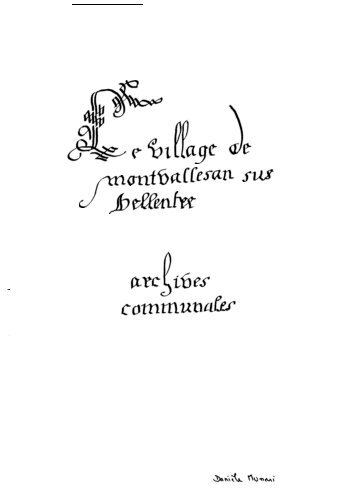 Le village de
montvallesan sus
bellentre
archives
communales
Danièle Munari